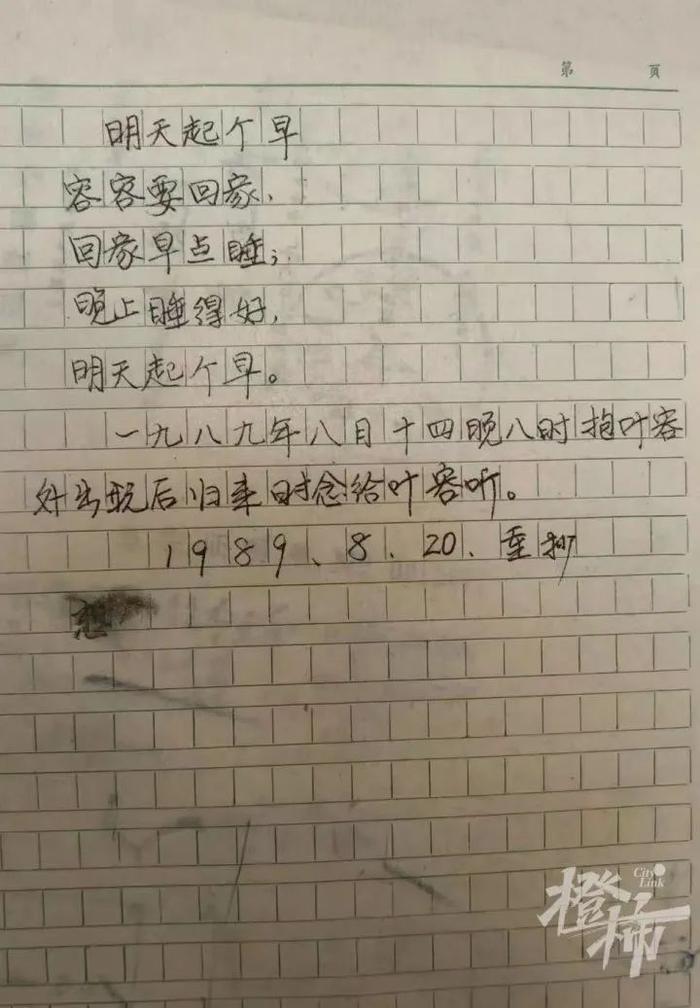 第 頁
明天起个早
容容要回家,
回家早点睡;
晚上睡得好,
明天起个早。
一九八九年八月十四晚八时抱叶容
外出玩后归来时念给叶容听。
1989、8、20、重抄
City Link
橙柿